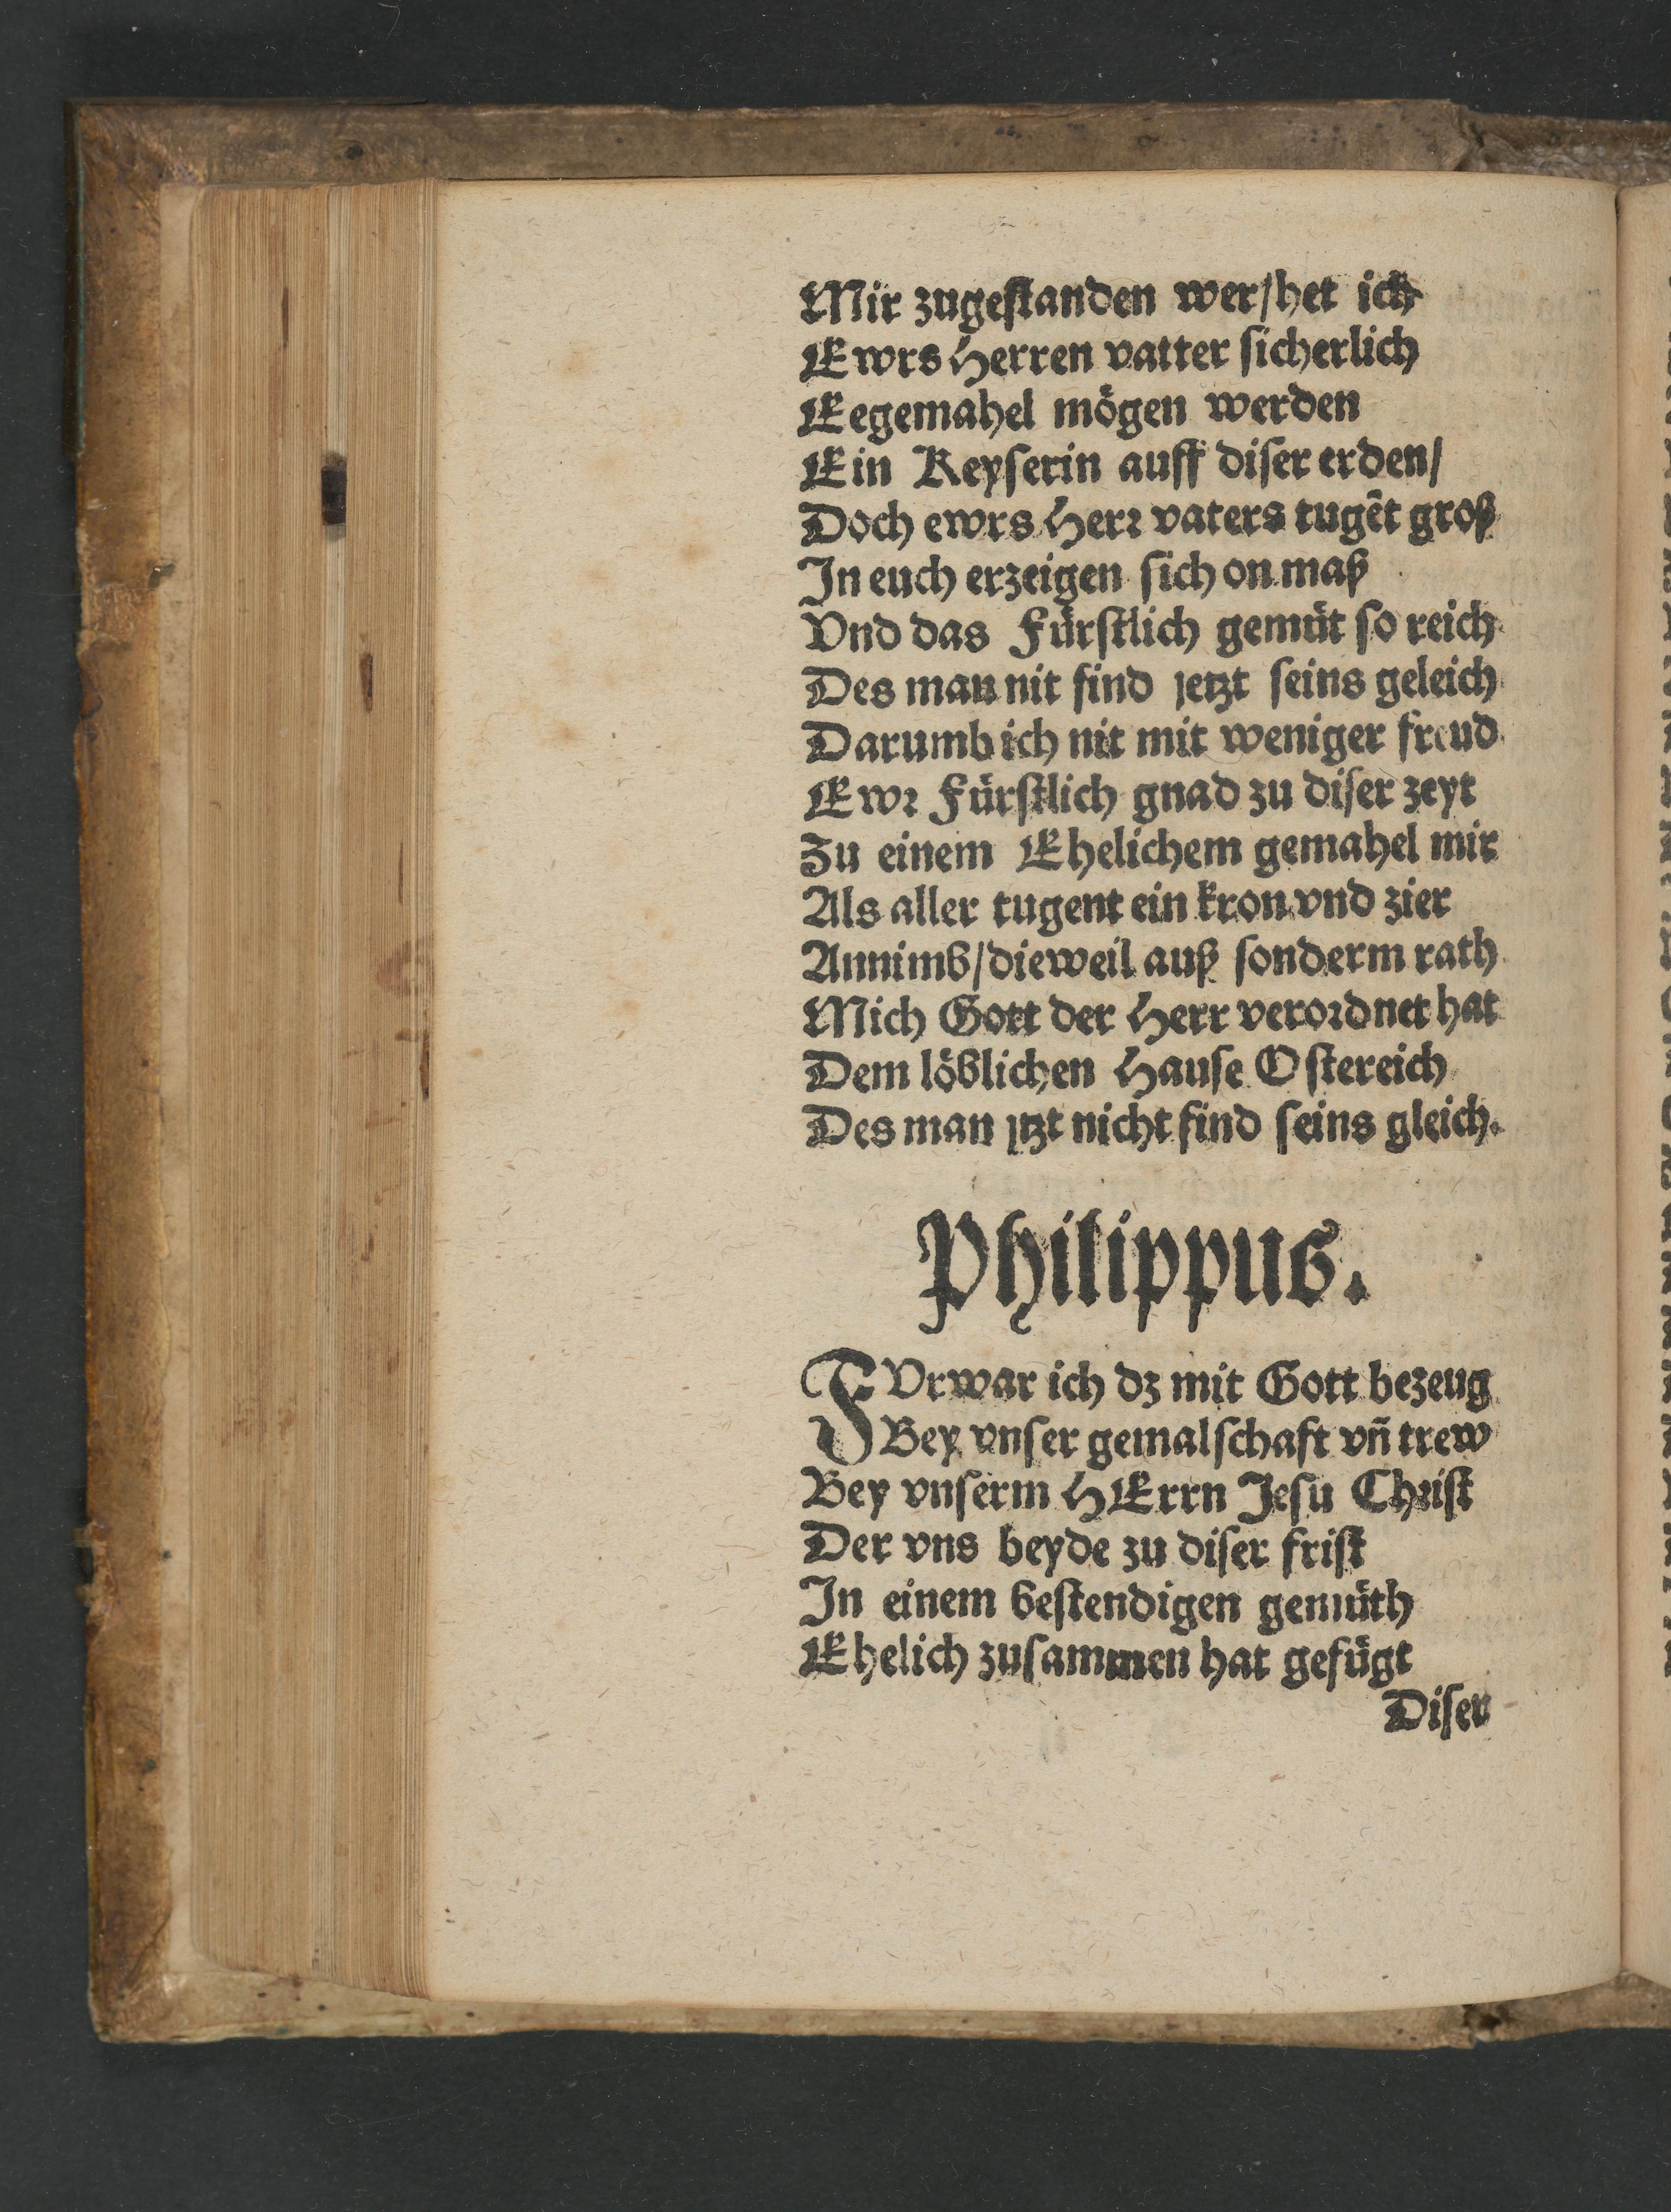 Mir zugeſtanden wer/het ich
Ewrs Herren vatter ſicherlich
Eegemahel mögen werden
Ein Keyſerin auff diſer erden/
Doch ewrs Herꝛ vaters tugēt groß
In euch erzeigen ſich on maß
Vnd das Fürſtlich gemüt ſo reich
Des man nit find jetzt ſeins geleich
Darumb ich nit mit weniger freud
Ewꝛ Fürſtlich gnad zu diſer zeyt
Zu einem Ehelichem gemahel mir
Als aller tugent ein kron vnd zier
Annimb/dieweil auß ſonderm rath
Mich Gott der Herr veroꝛdnet hat
Dem löblichen Hauſe Oſtereich
Des man jtzt nicht find ſeins gleich.
Philippus.
FVrwar ich dz mit Gott bezeug
Bey vnſer gemalſchaft vñ trew
Bey vnſerm HErrn Jeſu Chꝛiſt
Der vns beyde zu diſer friſt
In einem beſtendigen gemüth
Ehelich zuſammen hat gefügt
Diſer